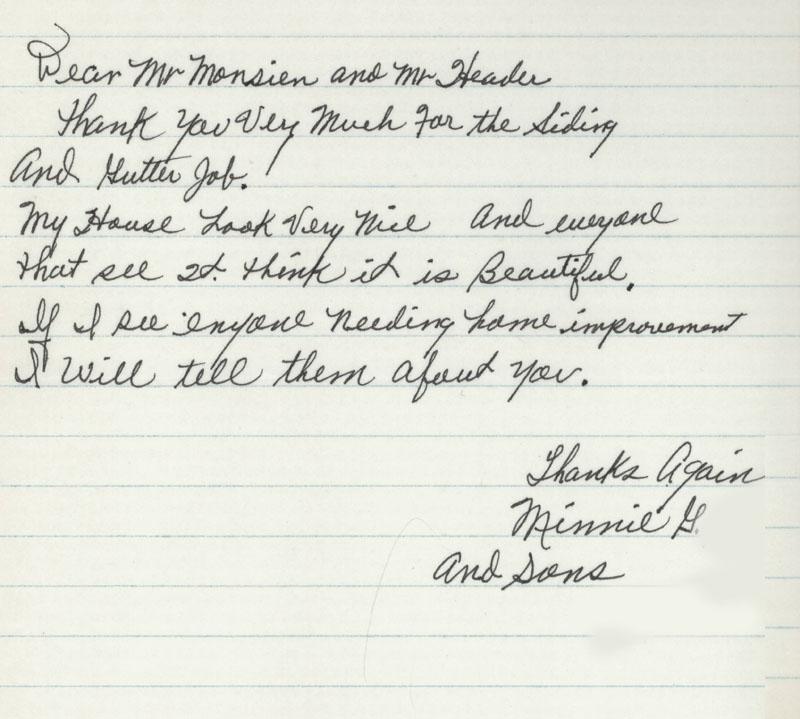 Dear Mr Monsien and Mr Header
Thank You Very Much For the Siding
And Gutter Job.
My House Look Very Nice And everyone
that see It. think it is Beautiful.
If I see enyone Needing home improvement
I Will tell them about You.
Thanks Again
Minnie G.
And Sons